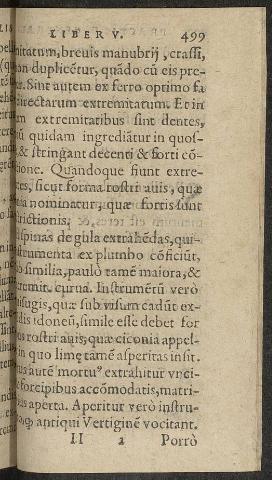 LIBER V. 499
mitatum, breuis manubrij, crassi,
non duplicẽtur, quãdo cũ eis pre-
Sint autem ex ferro optimo fa
directarum extremitatum. Et in
extremitatibus sint dentes,
quidam ingrediãtur in quos-
& stringant decenti & forti cõ-
ione. Quandoque fiunt extre-
es, sicut forma rostri auis, quæ
nia nominatur, quæ fortis sunt
trictionis.
spinas de gula extrahẽdas, qui-
strumenta ex plumbo cõficiũt,
similia, paulò tamẽ maiora, &
tremit. curua. Instrumẽtũ verò
isugis, quæ sub visum cadũt ex-
dis idoneũ, simile esse debet for
rostri auis, quæ ciconia appel-
in quo limę tamẽ asperitas insit.
autẽ mortuꝰ extrahitur vnci-
forcipibus accõmodatis, matri-
aperta. Aperitur verò instru-
ꝙ antiqui Vertiginẽ vocitant.
II 2 Porrò